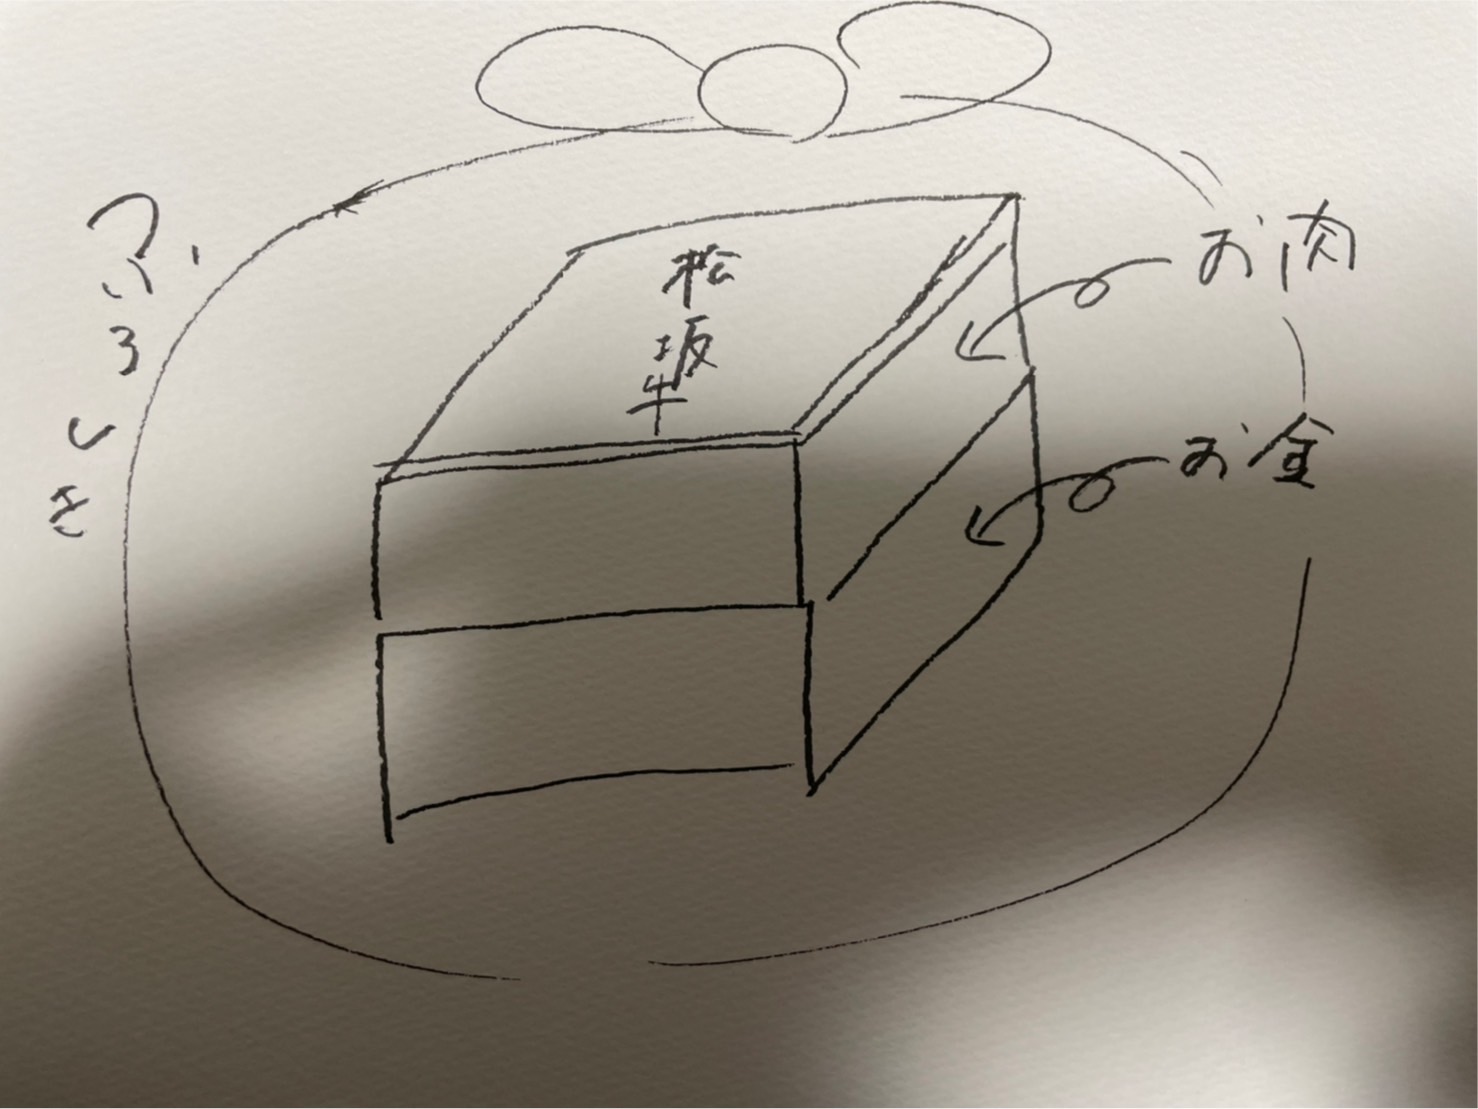 ふろしき
松坂牛
お肉
お金